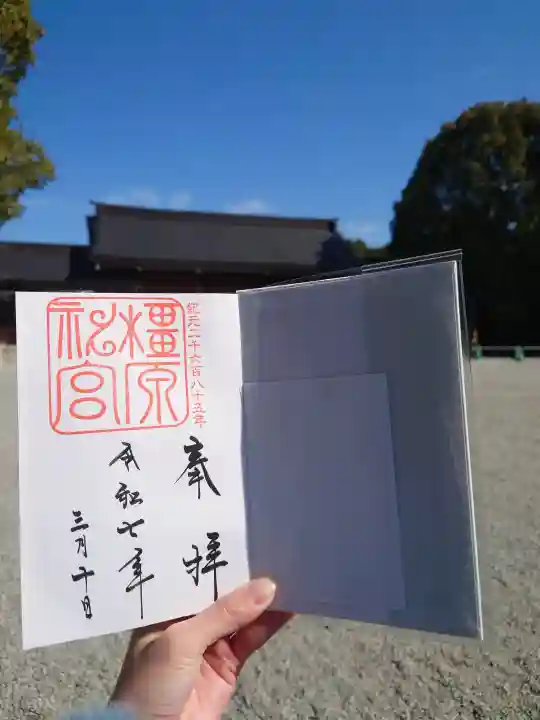 紀元二千六百八十五年
奉拝
橿原神宮
令和七年
三月十日